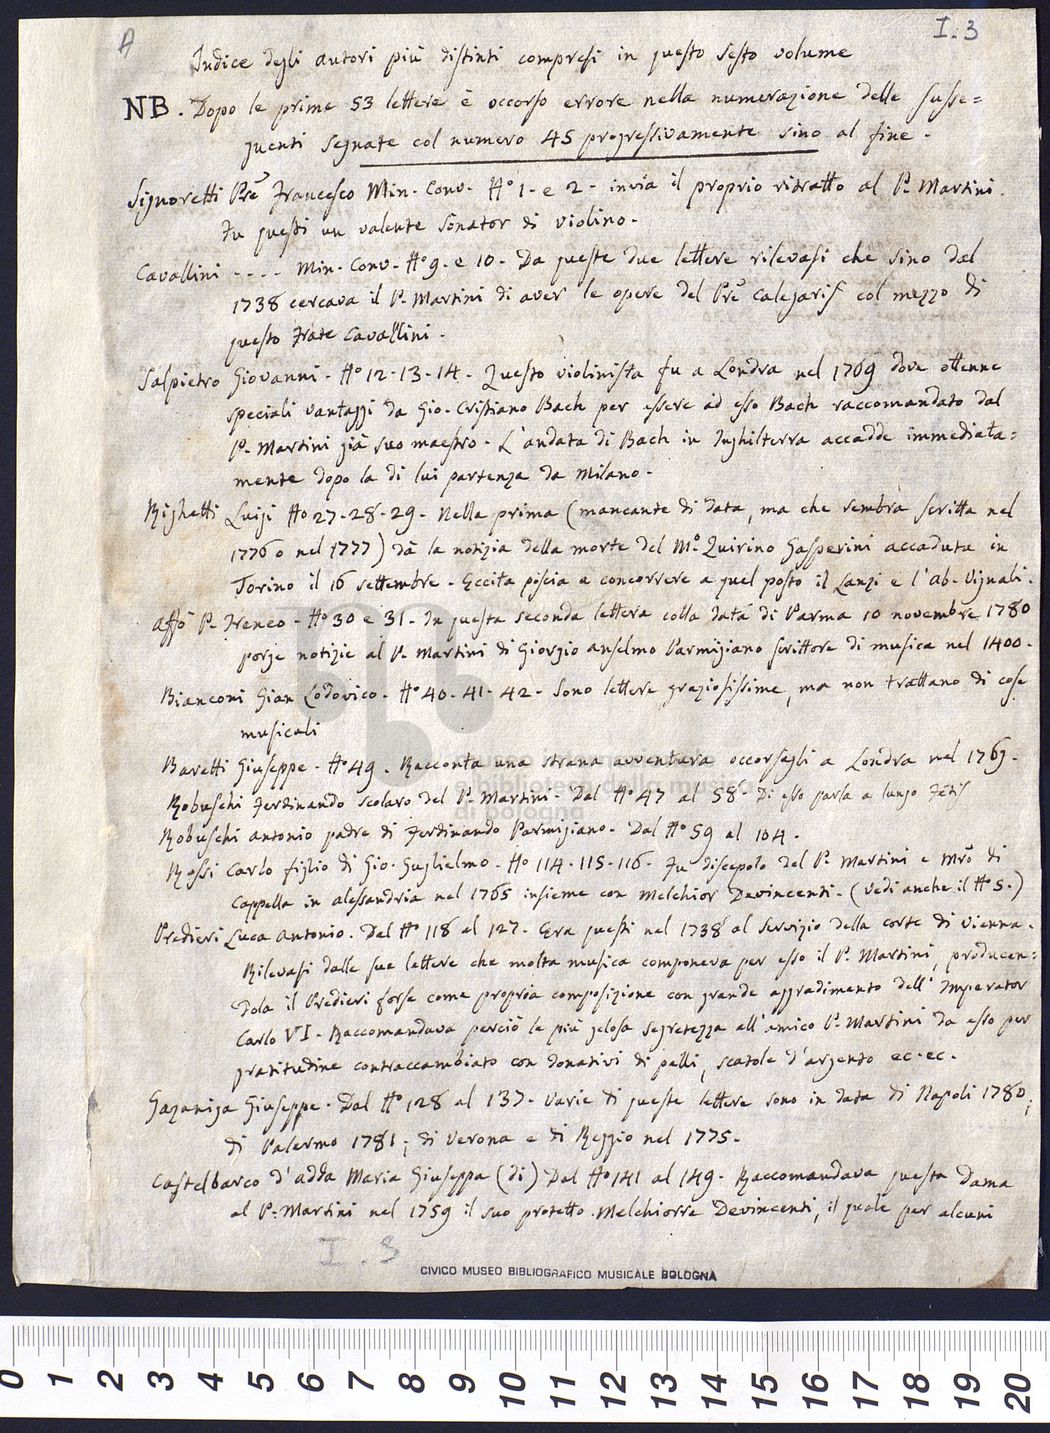 A
I. 3
Indice degli autori più distinti compresi in questo sesto volume
NB. Dopo le prime 53 lettere è occorso errore nella numerazione delle susse=
guenti segnate col numero 45 progressivamente sino al fine.
Signoretti Pre Francesco Min. Conv. No 1. e 2. invia il proprio ritratto al P. Martini.
Fu questi un valente sonator di violino.
Cavallini .... Min. Conv. No 9. e 10. Da queste due lettere rilevasi che sino dal
1738 cercava il P. Martini di aver le opere del Pre Calegaris col mezzo di
questo Frate Cavallini.
Salpietro Giovanni. No 12-13-14. Questo violinista fu a Londra nel 1769 dove ottenne
speciali vantaggi da Gio. Cristiano Bach per essere ad esso Bach raccomandato dal
P. Martini già suo maestro. L'andata di Bach in Inghilterra accadde immediata=
mente dopo la di lui partenza da Milano.
Righetti Luigi No 27-28-29. Nella prima (mancante di data, ma che sembra scritta nel
1776 o nel 1777) dà la notizia della morte del Mo. Quirino Gasperini accaduta in
Torino il 16 settembre. Eccita a concorrere a quel posto il Lanzi e l'Ab. Vignali.
Affò P. Ireneo. No 30 e 31. In questa seconda lettera colla data di Parma 10 novembre 1780
porge notizie al P. Martini di Giorgio Anselmo Parmigiano scrittore di musica nel 1400.
Bianconi Gian Lodovico. No 40-41-42. Sono lettere graziosissime, ma non trattano di cose
musicali
Baretti Giuseppe. No 49. Racconta una strana avventura occorsagli a Londra nel 1769.
Robuschi Ferdinando scolaro del P. Martini. Dal No 47 al 58. Di esso parla a lungo Fétis
Robuschi Antonio padre di Ferdinando Parmigiano. Dal No 59 al 104.
Rossi Carlo figlio di Gio. Guglielmo. No 114-115-116. Fu discepolo del P. Martini e Mro di
Cappella in Alessandria nel 1765 insieme con Melchior Devincenti. (Vedi anche il No 5.)
Predieri Luca Antonio. Dal No 118 al 127. Era questi nel 1738 al servizio della corte di Vienna.
Rilevasi dalle sue lettere che molta musica componeva per esso il P. Martini, producen=
dola il Predieri forse come propria composizione con grande aggradimento dell'Imperator
Carlo VI. Raccomandava perciò la più gelosa segretezza all'amico P. Martini da esso per
gratitudine contraccambiato con donativi di palli, scatole d'argento ec. ec.
Gazaniga Giuseppe. Dal No 128 al 137. Varie di queste lettere sono in data di Napoli 1780;
di Palermo 1781; di Verona e di Reggio nel 1775.
Castelbarco d'Adda Maria Giuseppa (di) Dal No 141 al 149. Raccomandava questa Dama
al P. Martini nel 1759 il suo protetto Melchiorre Devincenti, il quale per alcuni
I. 3
CIVICO MUSEO BIBLIOGRAFICO MUSICALE BOLOGNA
museo internazionale
e biblioteca della musica
di bologna
0 1 2 3 4 5 6 7 8 9 10 11 12 13 14 15 16 17 18 19 20